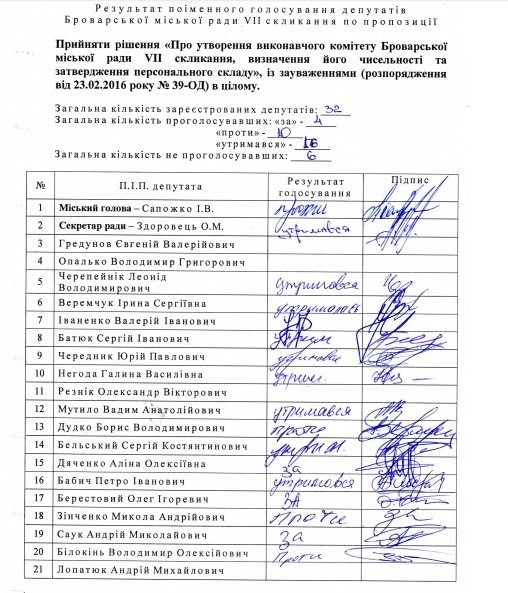 Результат поіменного голосування депутатів
Броварської міської ради VII скликання по пропозиції
Прийняти рішення «Про утворення виконавчого комітету Броварської
міської ради VII скликання, визначення його чисельності та
затвердження персонального складу», із зауваженнями (розпорядження
від 23.02.2016 року № 39-ОД) в цілому.
Загальна кількість зареєстрованих депутатів: 32
Загальна кількість проголосувавших: «за» - 4
«проти» - 10
«утримався» - 16
Загальна кількість не проголосувавших: 6
№ П.І.П. депутата Результат голосування Підпис
1 Міський голова – Сапожко І.В. проти
2 Секретар ради – Здоровець О.М. утримався
3 Гредунов Євгеній Валерійович
4 Опалько Володимир Григорович
5 Черепейнік Леонід Володимирович утримався
6 Веремчук Ірина Сергіївна утрималась
7 Іваненко Валерій Іванович
8 Батюк Сергій Іванович
9 Чередник Юрій Павлович утримався
10 Негода Галина Василівна
11 Резнік Олександр Вікторович
12 Мутило Вадим Анатолійович утримався
13 Дудко Борис Володимирович проти
14 Бельський Сергій Костянтинович
15 Дяченко Аліна Олексіївна за
16 Бабич Петро Іванович утримався
17 Берестовий Олег Ігоревич ЗА
18 Зінченко Микола Андрійович Проти
19 Саук Андрій Миколайович за
20 Білокінь Володимир Олексійович Проти
21 Лопатюк Андрій Михайлович